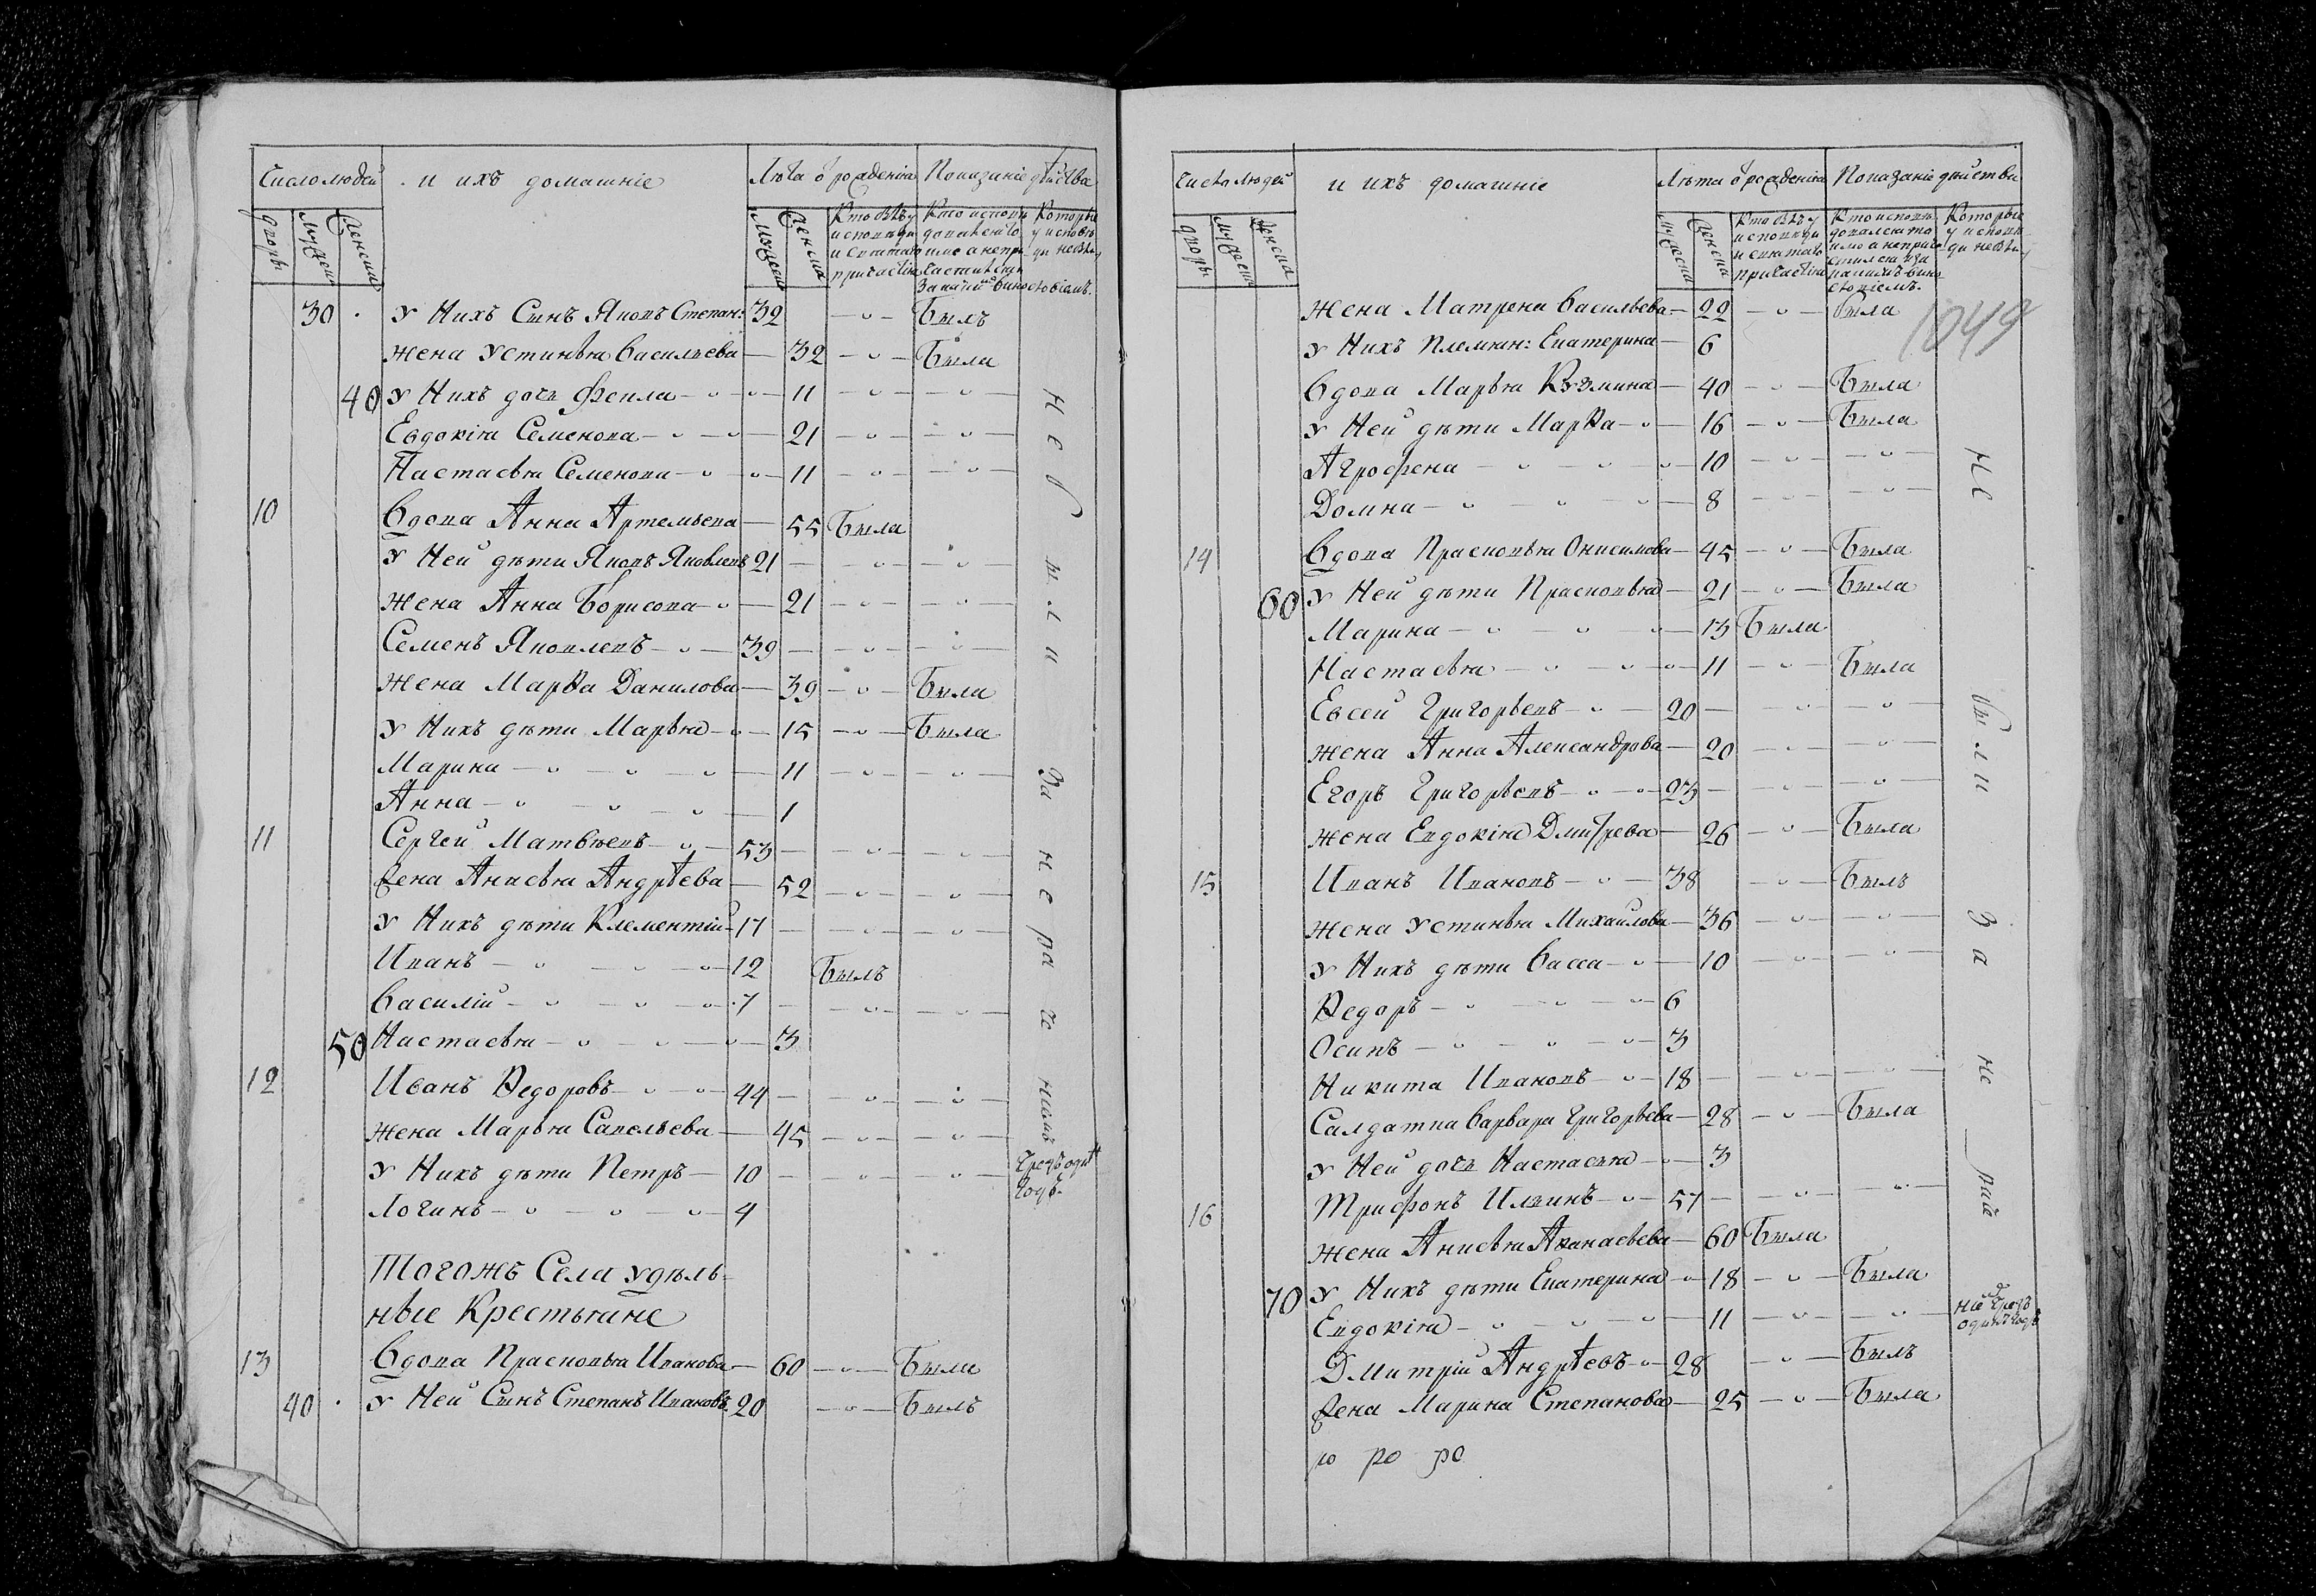 Число людей
и ихъ домашніе
Лѣта ѿ рожденія
Показаніе дѣйства
дворы
мужеск
женска
мужеска
женска
Кто былъ у
исповѣди
и святаго
причастія
Кто исповѣ
которые
у исповѣ
ди не бы
30 У нихъ Сынъ Яковъ Степан: 32 Былъ
жена Устинья Васильева 32 Была
40 У нихъ дочь Фекла 11
Евдокія Семенова 21
Настасья Семенова 11
10 Вдова Анна Артемьева 55 Была
У Ней дѣти Яковъ Яковлевъ 21
жена Анна Борисова 21
Семенъ Яковлевъ 39
жена Марѳа Данилова 39 Была
У Нихъ дѣти Марья 15 Была
Марина 11
Анна 1
11 Сергей Матвѣевъ 53
жена Анисья Андрѣева 52
У Нихъ дѣти Клементій 17
Иванъ 12 Былъ
Василій 7
50 Настасья 3
12 Иванъ Ѳедоровъ 44
жена Марья Савельева 45
У Нихъ дѣти Петръ 10
Логинъ 4
не были За нерачениемъ
чрезъ одинъ
годъ
Тогожъ Села удѣль-
ные Крестьяне
13 Вдова Прасковья Иванова 60 Была
40 У Ней Сынъ Степанъ Ивановъ 20 Былъ
Число людей
и ихъ домашніе
Лѣта ѿ рожденія
Показаніе дѣйства
дворы
мужеск
женска
мужеска
женска
Кто былъ у
исповѣди
и святаго
причастія
Которые
у исповѣ
ди не бы
1049
жена Матрена Васильева 22 Была
У Нихъ Племян: Екатерина 6
Вдова Марья Кузмина 40 Была
У Ней дѣти Марѳа 16 Была
Агрофена 10
Домна 8
14 Вдова Прасковья Онисимова 45 Была
60 У Ней дѣти Прасковья 21 Была
Марина 13 Была
Настасья 11 Была
Евсей Григорьевъ 20
жена Анна Александрова 20
Егоръ Григорьевъ 23
жена Евдокія Дмитрева 26 Была
15 Иванъ Ивановъ 38 Былъ
жена Устинья Михайлова 36
У Нихъ дѣти Васса 10
Ѳедоръ 6
Осипъ 3
Никита Ивановъ 18
Салдатка Варвара Григорьева 28 Была
У Ней дочь Настасья 3
16 Трифонъ Ильинъ 57
жена Анисья Аѳанасьева 60 Была
70 У Нихъ дѣти Екатерина 18 Была
Евдокія 11
Дмитрій Андрѣевъ 28 Былъ
жена Марина Степанова 25 Была
не были За не
одинъ годъ
ро ро ро